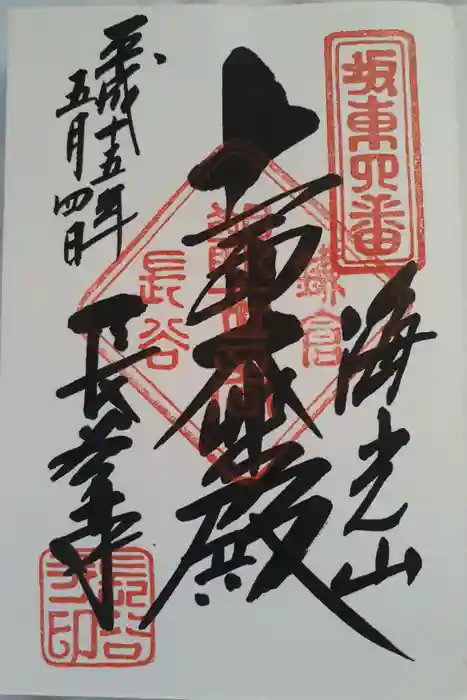 坂東四番
海光山
鎌倉
十一面大悲殿
長谷
平成十五年
五月四日
長谷寺
長谷
寺印